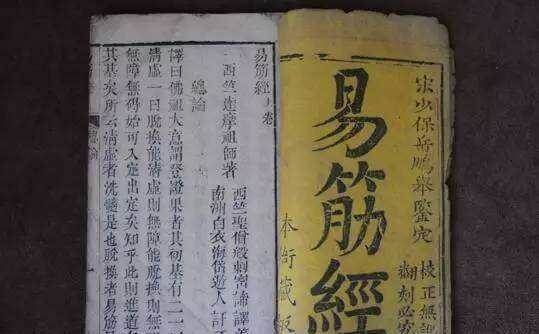 宋少保岳鵬舉鑒定
校正無訛
翻刻必究
易筋經
本衙藏板
易筋經上卷
西竺達摩祖師著
西竺聖僧般剌密諦譯義
南洲白衣海岱遊人訂
總論
譯曰佛祖大意謂登證果者其初基有二一
清虛一曰脫換能清虛則無障能脫換則無
無障無碍始可入定出定矣知乎此則進道
其基矣所云清虛者洗髓是也脫換者易筋
總論